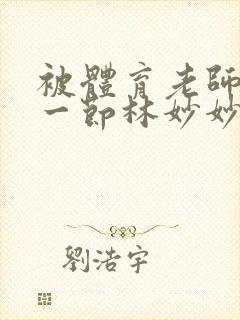 被體育老師
一節林妙妙
劉浩宇